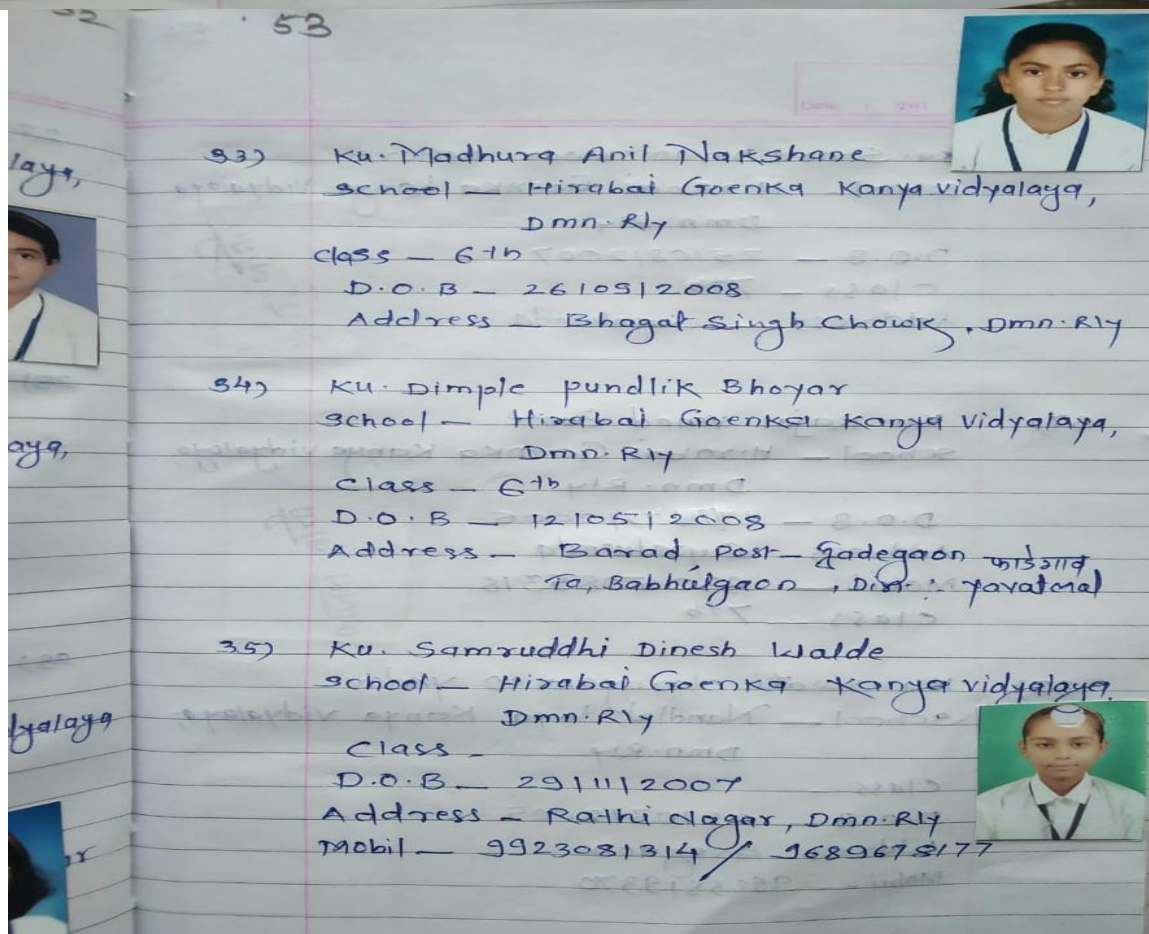 52
53
laya,
33) Ku. Madhura Anil Nakshane
School - Hirabai Goenka Kanya vidyalaya,
Dmn. Rly
class - 6th
D.O.B - 26/09/2008
Address - Bhagat Singh Chowk, Dmn. Rly
34) Ku. Dimple pundlik Bhoyar
School - Hirabai Goenka Kanya Vidyalaya,
aya,
Dmn. Rly
Class - 6th
D.O.B - 12/05/2008
Address - Barad, post - gadegaon फाडेगाव
Ta, Babhulgaon, Dist : yavatmal
35) Ku. Samruddhi Dinesh Walde
School - Hirabai Goenka Kanya vidyalaya.
dyalaya
Dmn. Rly
Class -
D.O.B - 29/11/2007
Address - Rathi Nagar, Dmn. Rly
Mobil - 9923081314 / 9689678177